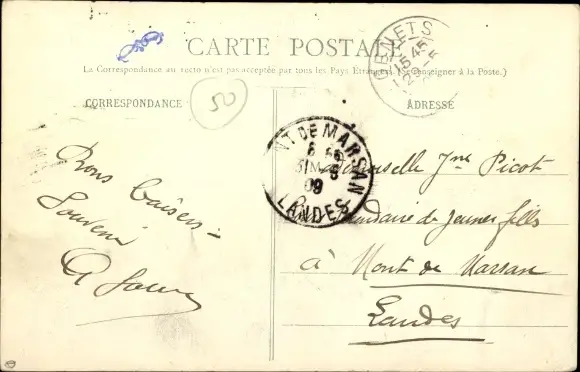 CARTE POSTALE
La Correspondance au recto n'est pas acceptée par tous les Pays Etrangers. (Se renseigner à la Poste.)
CORRESPONDANCE
ADRESSE
50
GENETS
15 45
MT DE MARSAN
LANDES
09
Bons baisers
Souvenir
Jne Picot
de jeunes filles
à Mont de Marsan
Landes